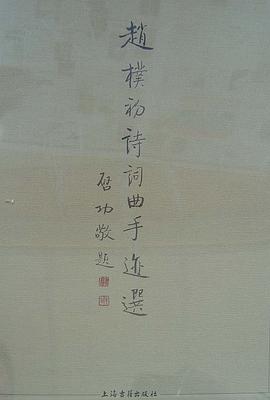 趙樸初詩詞曲手迹選
啓功敬題
上海古籍出版社